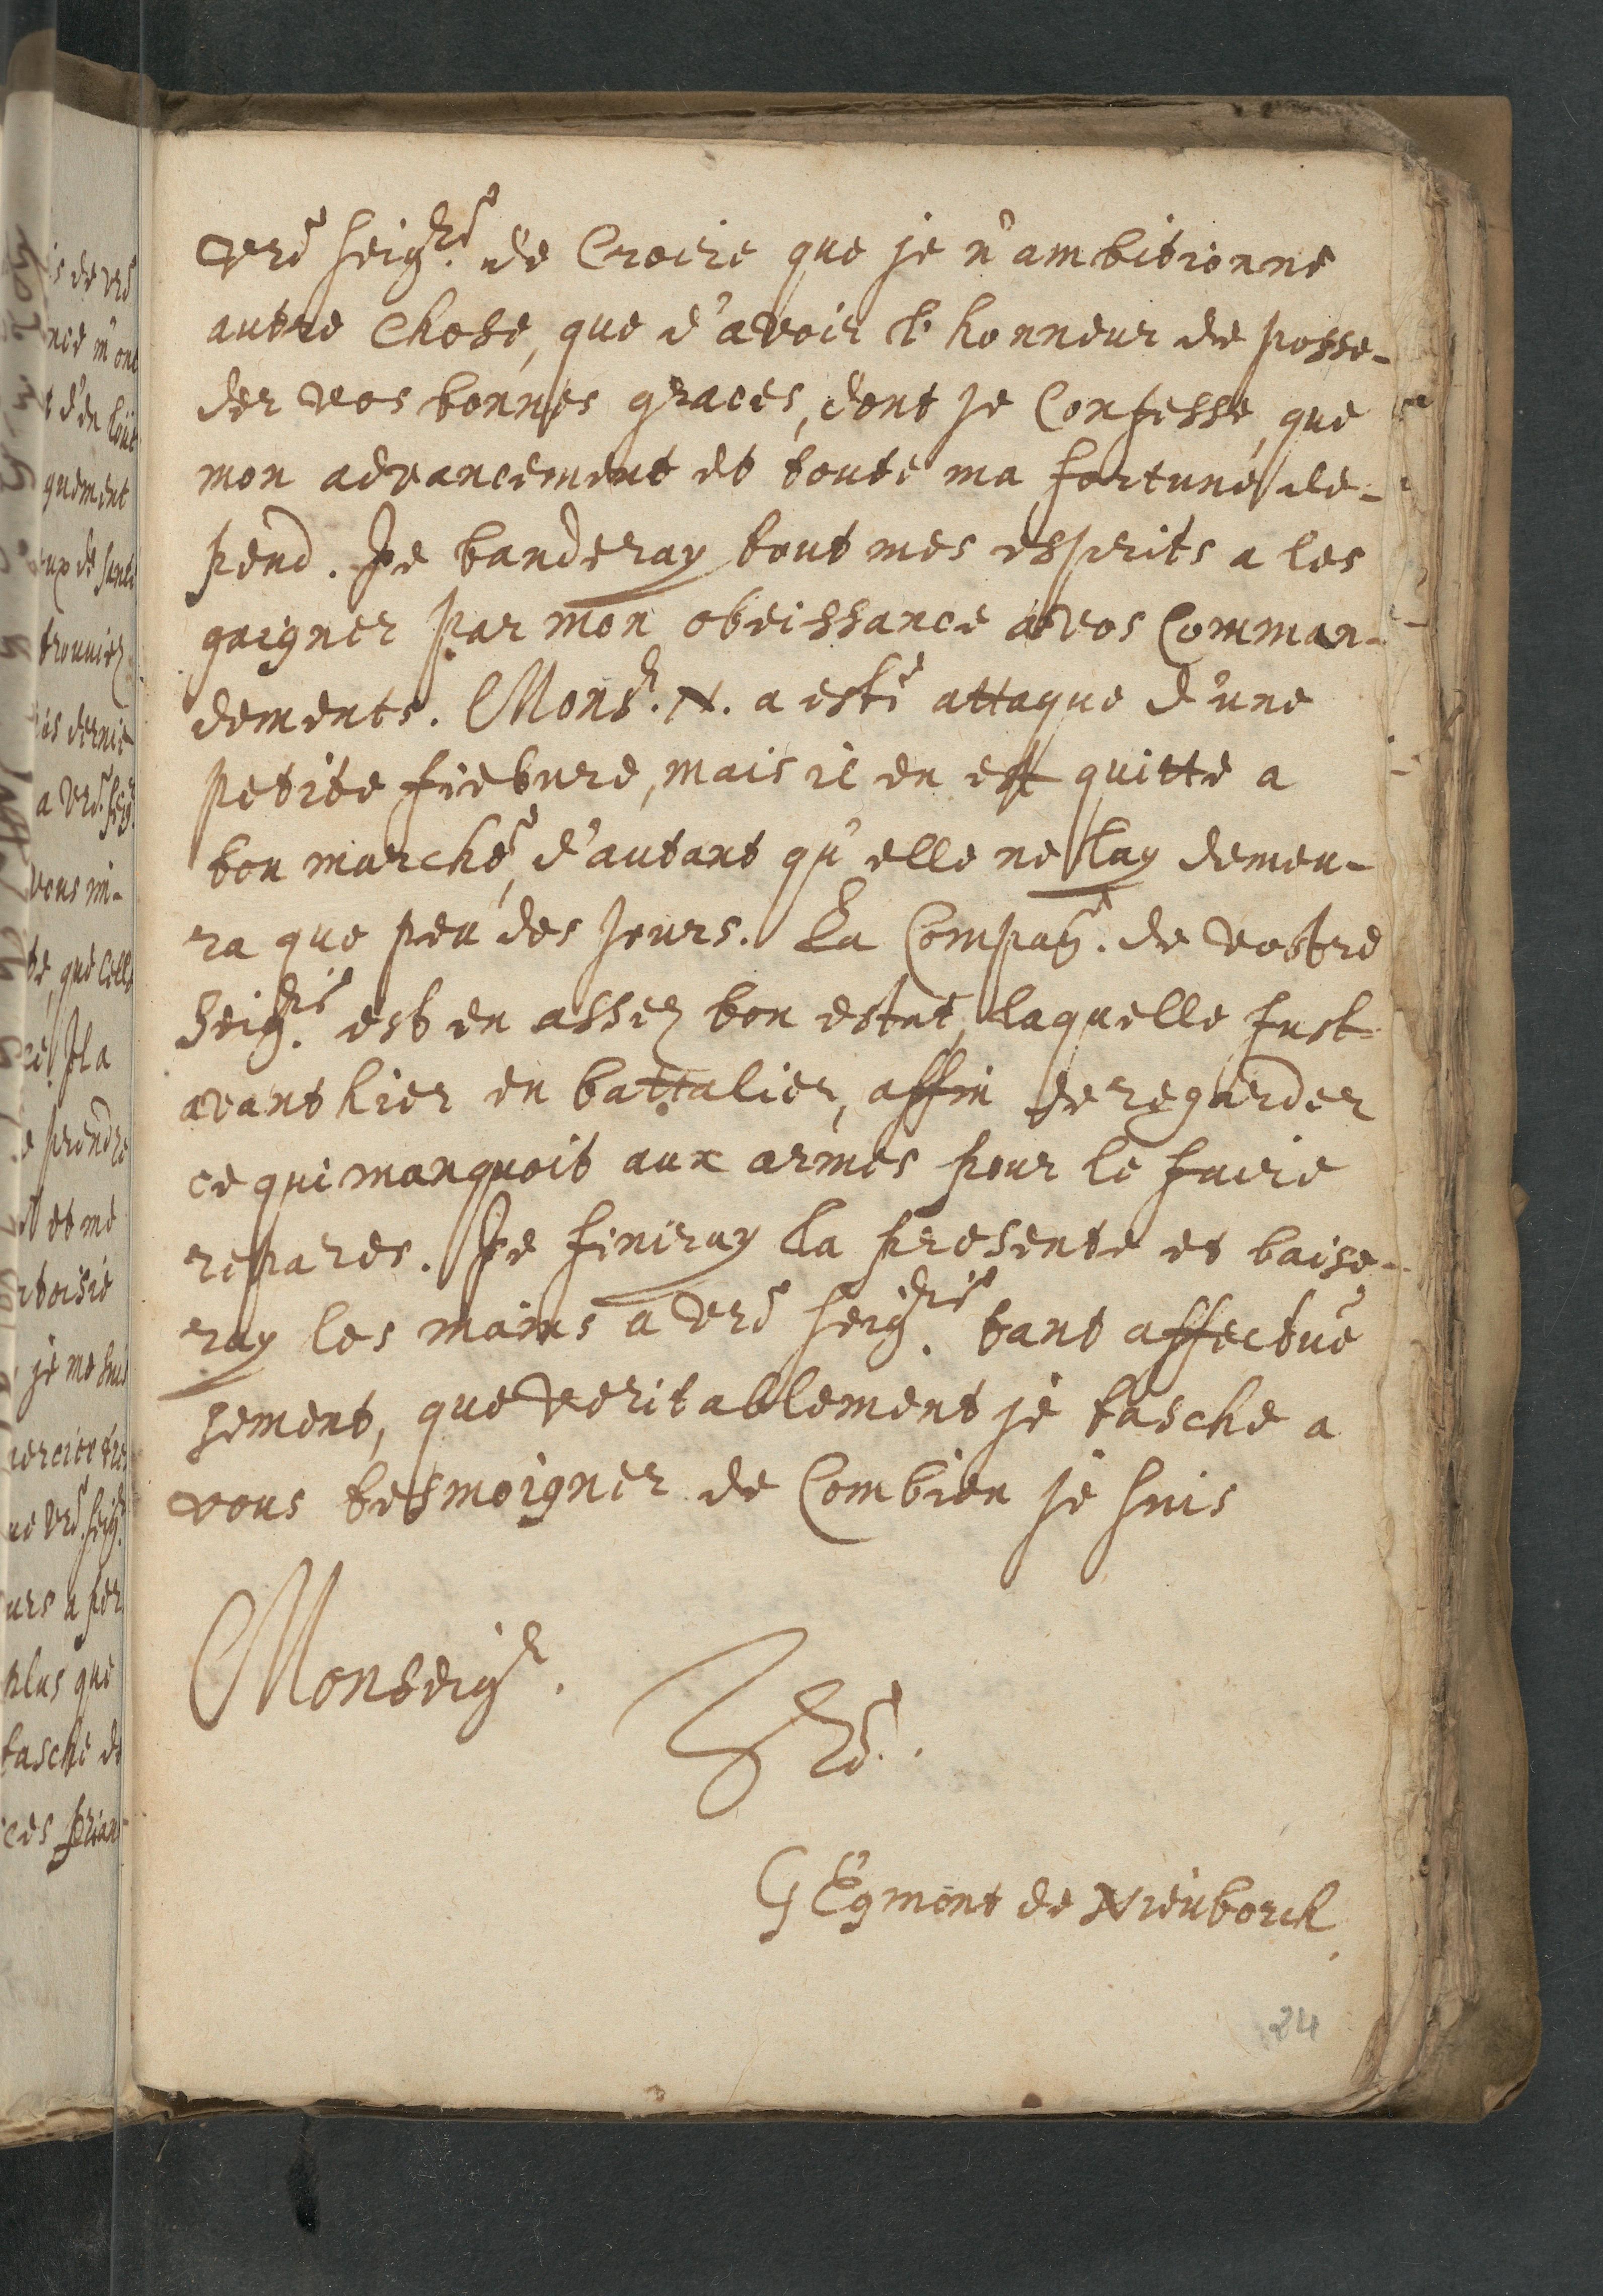 vre seigrie. de Croire que je n'ambitionne
autre chose, que d'avoir l'honneur de posse-
der vos bonnes graces, dont je Confesse, que
mon advancement et toute ma fortune de-
pend. Je banderay tout mes esprits a les
gaigner par mon obeissance a vos Comman-
dements. Monsr. N. a esté attaque d'une
petite fiebure, mais il en est quitte a
bon marché, d'autant qu'elle ne lay demeu-
ra que peu des jours. La Compag. de vostre
Seigrie. est en assez bon estat, laquelle fust
avant hier en battalier, affin de regarder
ce qui manquoit aux armes pour le faire
repares. Je finiray la presente et baise-
ray les mains a vre seigrie. tant affectue
sement, que veritablement je tasche a
vous tesmoigner de Combien je suis
Monseigr.
G Egmont de Nieuborck
24
is de vre
nce m'ont
quement
trouviez
vous m-
te, que celle
Il a
prendre
et me
je me suis
plus que
tasche de